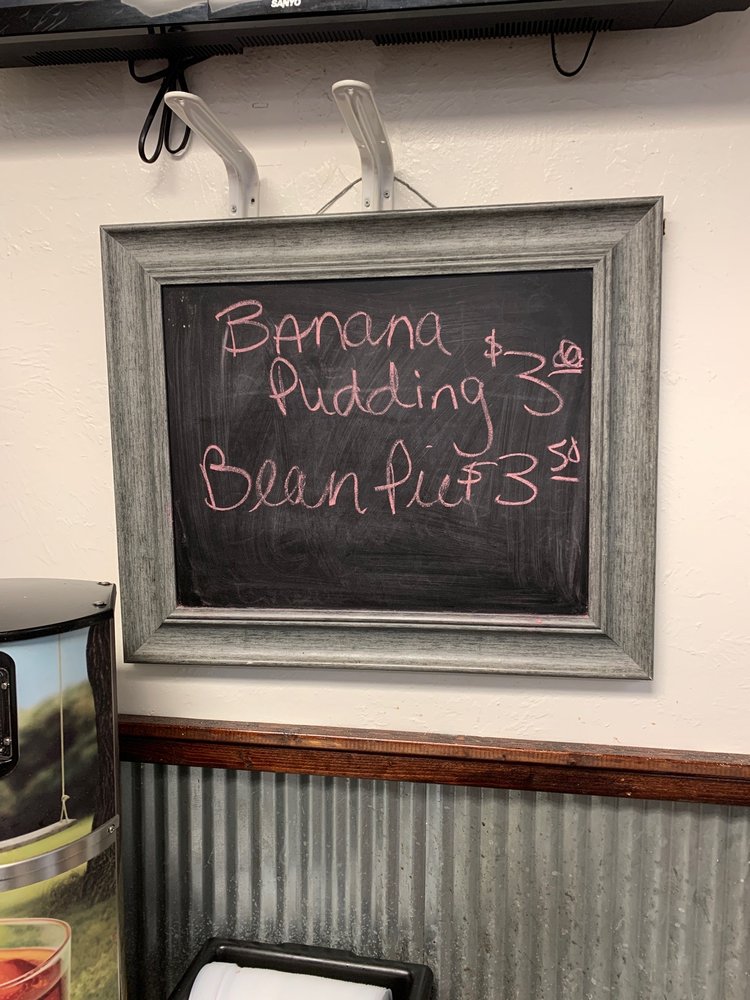 SANYO
BANANA
Pudding $3.00
Bean Pie $3.50